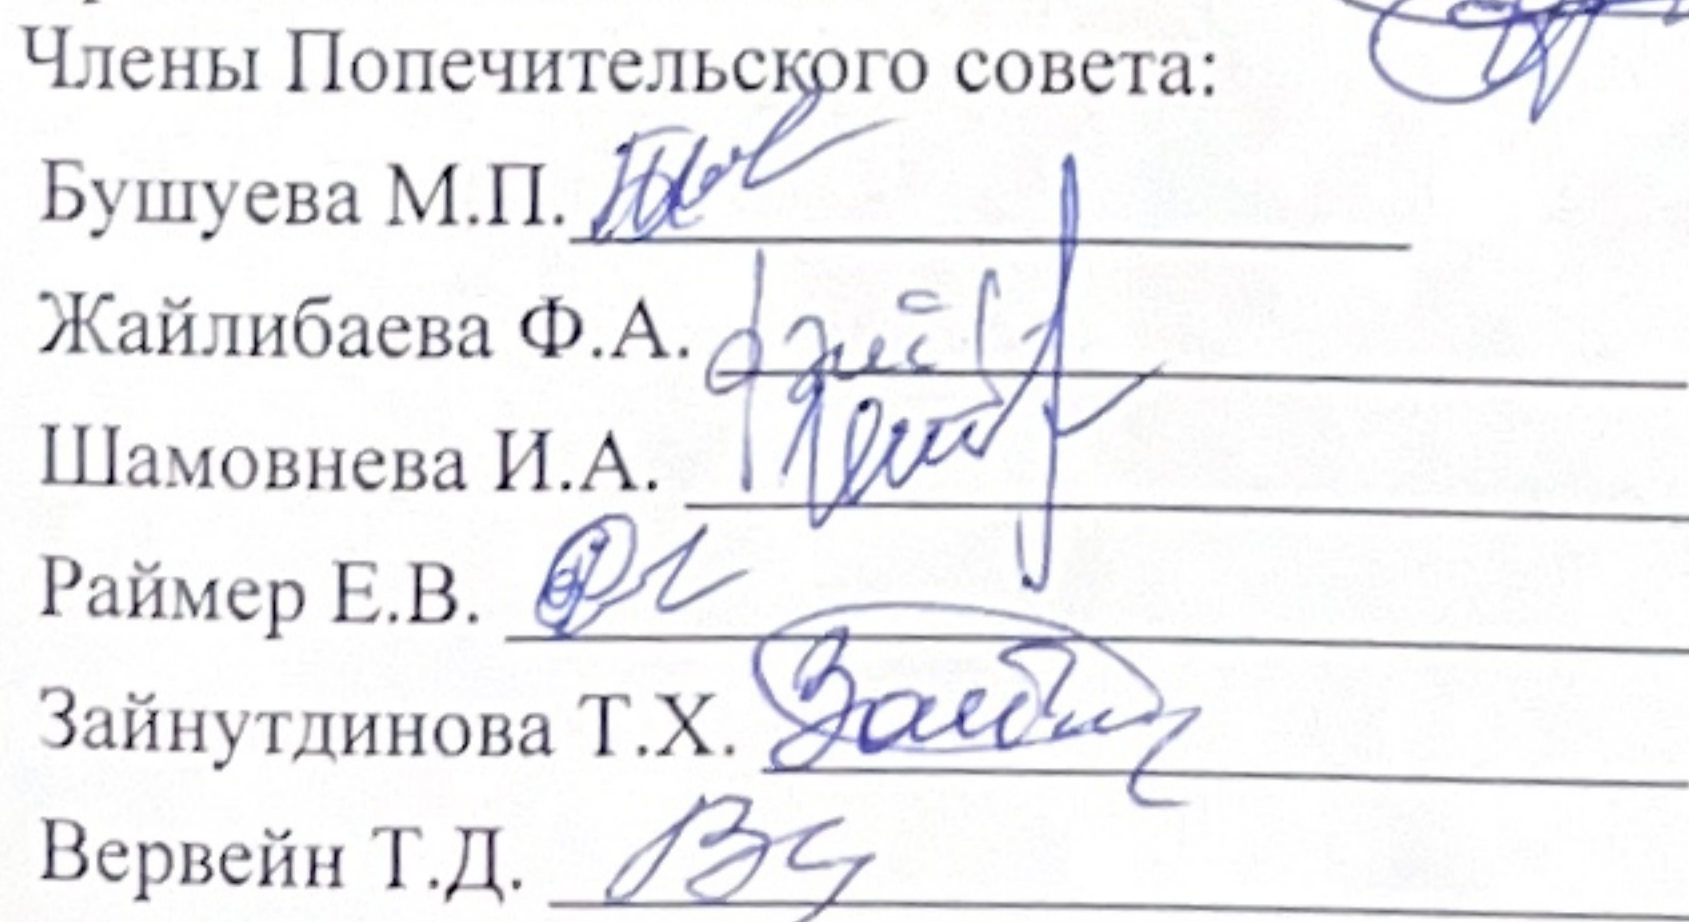 Члены Попечительского совета:
Бушуева М.П.
Жайлибаева Ф.А.
Шамовнева И.А.
Раймер Е.В.
Зайнутдинова Т.Х.
Вервейн Т.Д.